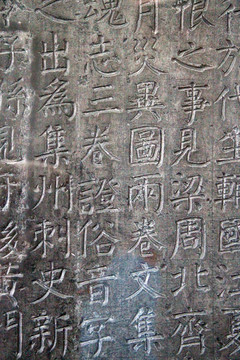 方代幹國江夏
恨之事見梁周北齊
月災異圖兩卷文集
魂志三卷證俗音字
之出為集州刺史新
子孫見于後黃門